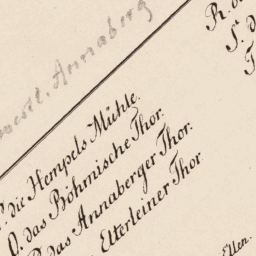 westl. Annaberg
die Hempels Mühle.
O. das Böhmische Thor.
P. das Annaberger Thor.
Elterleiner Thor
Ellen.